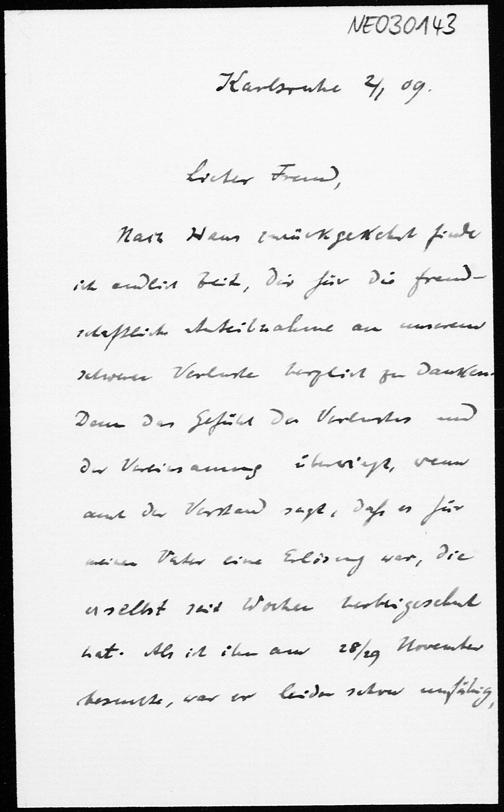 NE030143
Karlsruhe 2/1 09.
Lieber Freund,
Nach Haus zurückgekehrt finde
ich endlich Zeit, Dir für Die freund-
schaftliche Anteilnahme an unserem
schweren Verluste herzlich zu Danken.
Denn Das Gefühl Des Verlustes und
Der Vereinsamung überwiegt, wenn
auch Der Verstand sagt, Daß es für
meinen Vater eine Erlösung war, Die
er selbst seit Wochen herbeigesehnt
hat. Als ich ihn am 28/29 November
besuchte, war er leider schon unfähig,